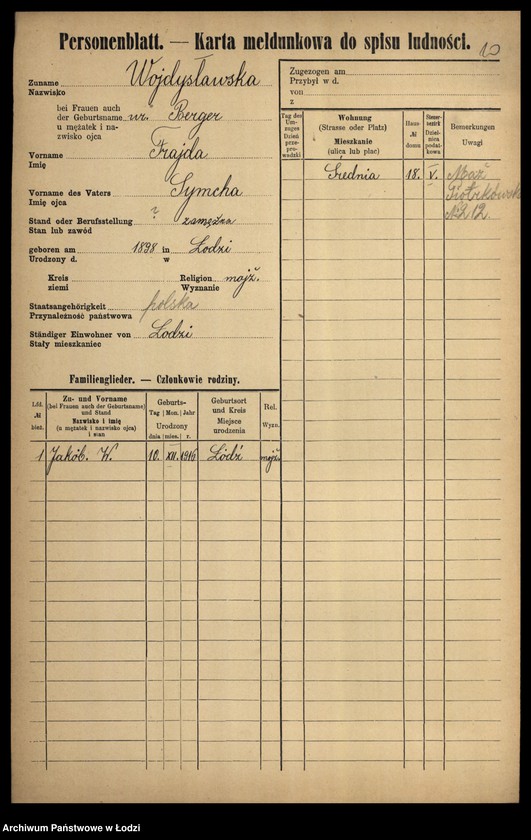 Personenblatt. — Karta meldunkowa do spisu ludności.
10
Zuname Wojdysławska
Nazwisko
bei Frauen auch
der Geburtsname ur. Berger
u mężatek i na-
zwisko ojca
Vorname Frajda
Imię
Vorname des Vaters Symcha
Imię ojca
Stand oder Berufsstellung ? zamężna
Stan lub zawód
geboren am 1898 in Łodzi
Urodzony d. w
Kreis
ziemi
Religion mojż.
Wyznanie
Staatsangehörigkeit polska
Przynależność państwowa
Ständiger Einwohner von Łodzi
Stały mieszkaniec
Zugezogen am
Przybył w d.
von
z
Tag des Um-zuges
Dzień prze-prowadzki
Wohnung
(Strasse oder Platz)
Mieszkanie
(ulica lub plac)
Haus-
№
domu
Steuer-bezirk
Dziel-nica podat-kowa
Bemerkungen
Uwagi
Średnia 18. V. Mąż
Piotrkowsk
№ 212.
Familienglieder. — Członkowie rodziny.
Lfd.
№
bież.
Zu- und Vorname
(bei Frauen auch der Geburtsname)
und Stand
Nazwisko i imię
(u mężatek i nazwisko ojca)
i stan
Geburts-
Tag Mon. Jahr
Urodzony
dnia mies. r.
Geburtsort
und Kreis
Miejsce
urodzenia
Rel.
Wyzn.
1 Jakób. W. 10. XII. 1916 Łódź mojż.
Archiwum Państwowe w Łodzi